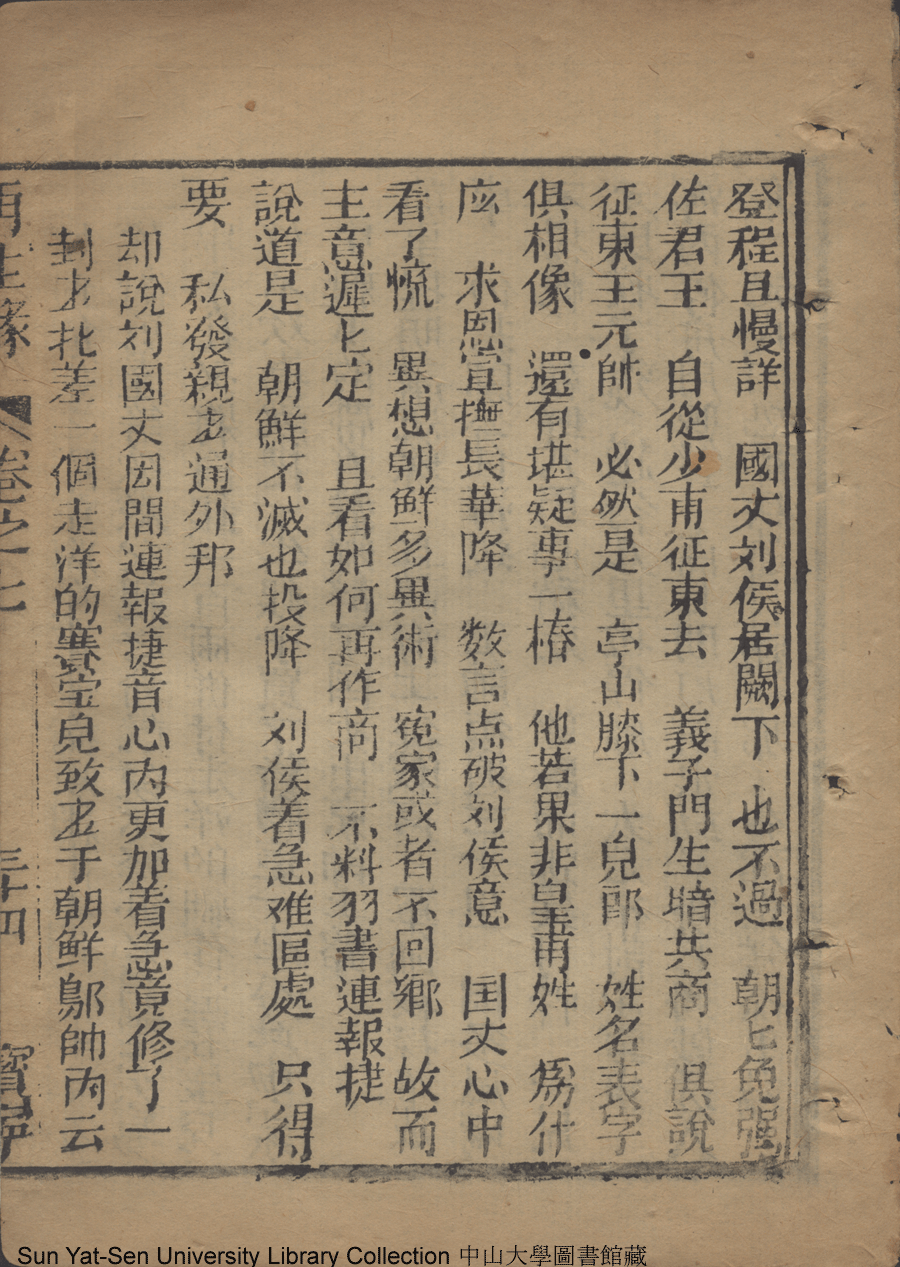 登程且慢詳　國丈刘侯居闕下　也不過　朝匕免强
佐君王　自從少甫征東去　義子門生暗共商　俱說
征東王元帥　必然是　亭山膝下一兒郎　姓名表字
俱相像　還有堪疑事一樁　他若果非皇甫姓　爲什
庅　求恩宣撫長華降　数言点破刘侯意　国丈心中
看了慌　異想朝鮮多異術　冤家或者不回鄉　故而
主意遲匕定　且看如何再作商　不料羽書連報捷
說道是　朝鮮不滅也投降　刘侯着急难區處　只得
要　私發親书通外邦
却說刘國丈因間連報捷音心內更加着急竟修了一
封书扎差一個走洋的賽宝兒致书于朝鮮鄔帥內云
再生緣　卷之十七　三十四　寳寧
Sun Yat-Sen University Library Collection 中山大學圖書館藏